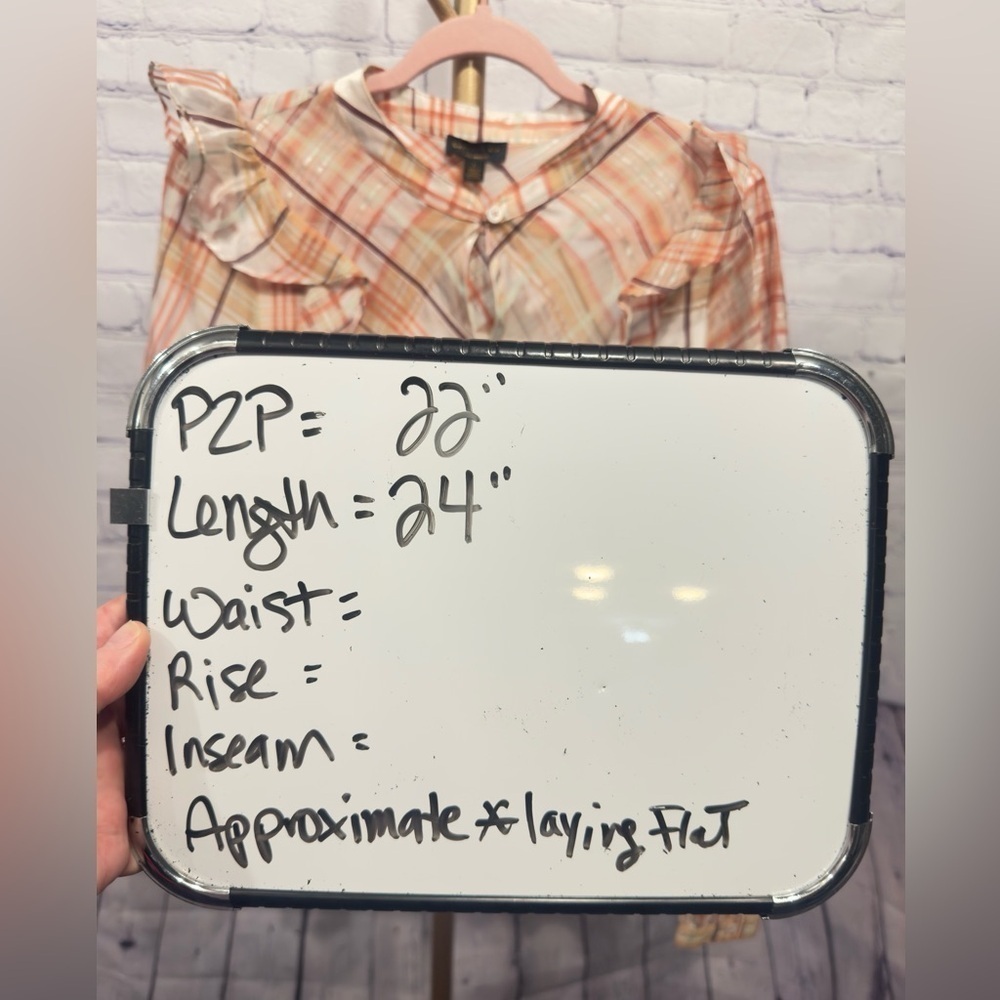 P2P = 22"
Length = 24"
Waist =
Rise =
Inseam =
Approximate * laying Flat